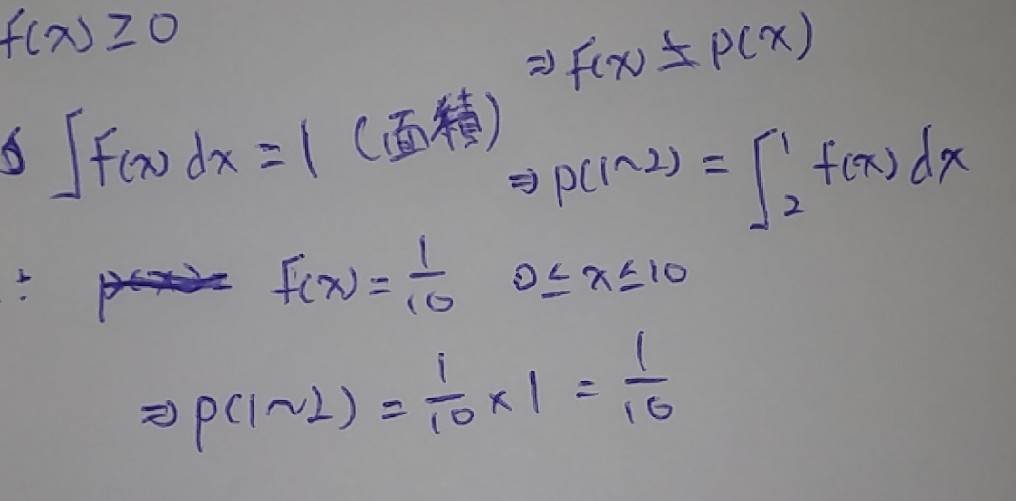 f(x) ≥ 0
⇒ f(x) ≠ p(x)
∫ f(x) dx = 1 (面積)
⇒ p(1~2) = ∫₂¹ f(x) dx
: f(x) = 1/10 0 ≤ x ≤ 10
⇒ p(1~2) = 1/10 × 1 = 1/10